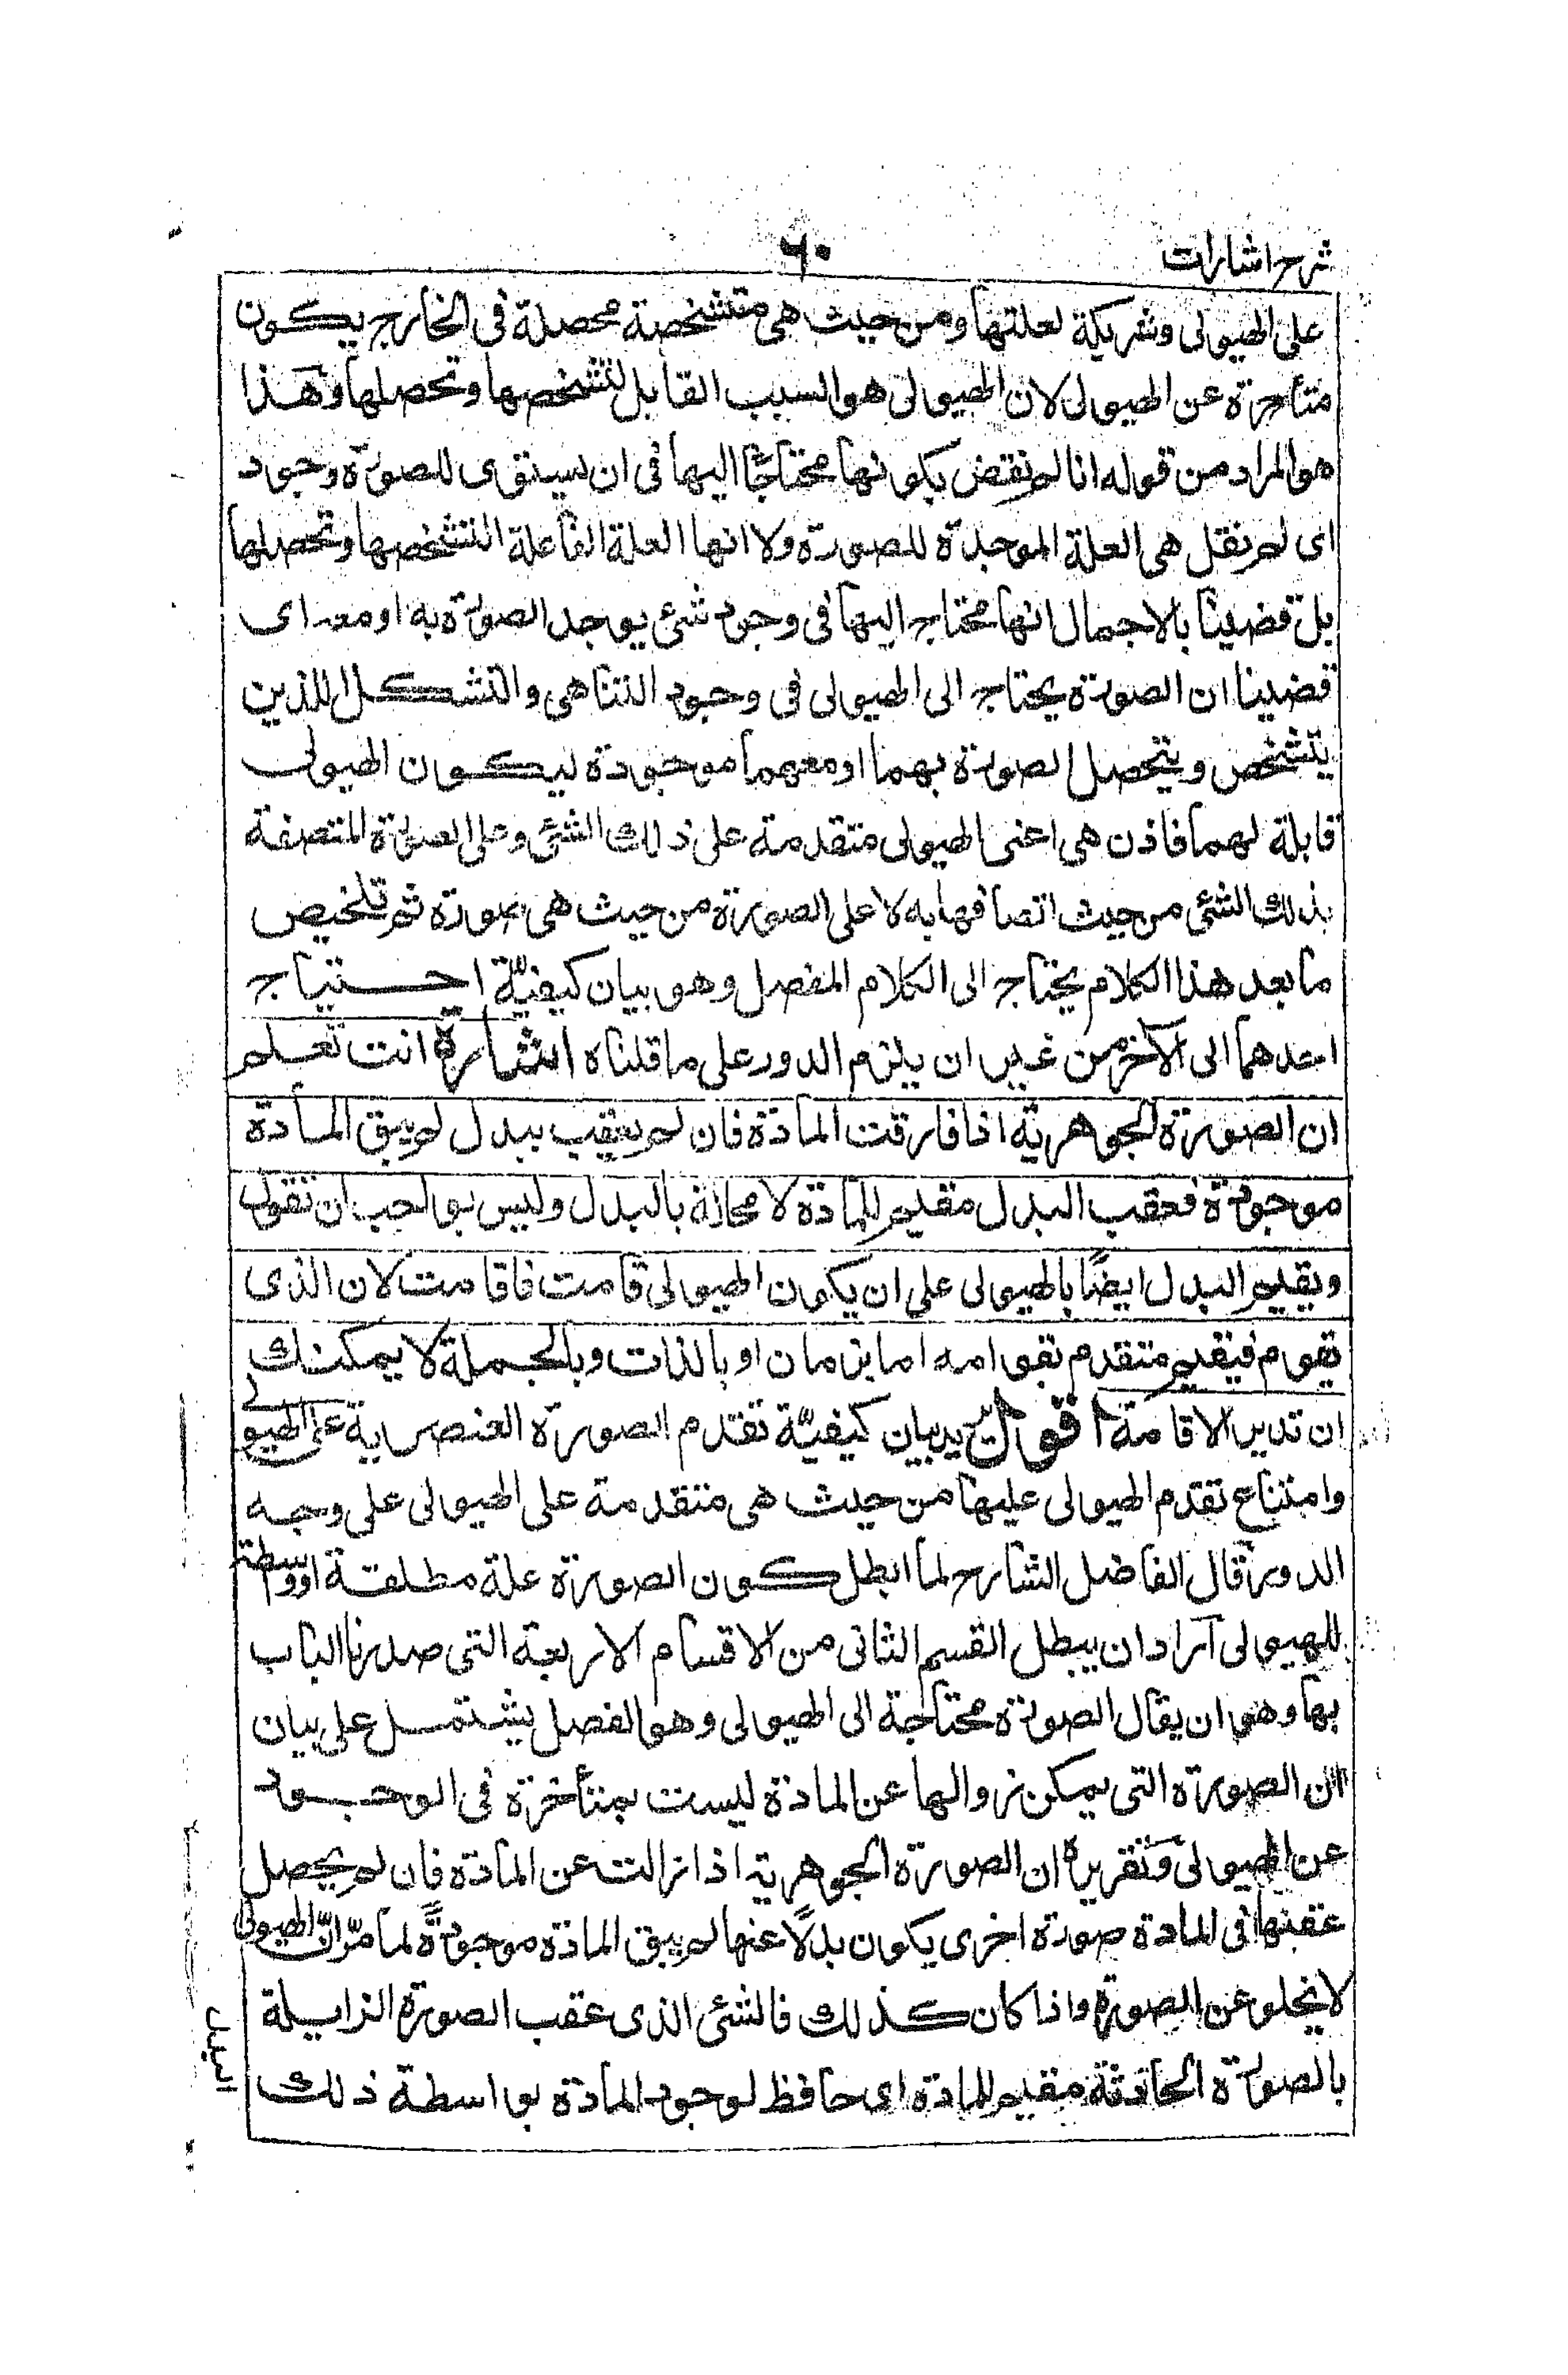 شرح اشارات
٦٠
على الهيولى وشريكة لعلتها ومن حيث هى متشخصة محصلة فى الخارج يكون
متأخرة عن الهيولى لان الهيولى هو السبب القابل لتشخصها وتحصلها وهذا
هو المراد من قوله انا لم نقض بكونها محتاجًا اليها فى ان يستوى للصورة وجود
اى لم نقل هى العلة الموجدة للصورة ولا انها العلة الفاعلة لتشخصها وتحصلها
بل قضينا بالاجمال انها محتاج اليها فى وجود شئ يوجد الصورة به او معه اى
قضينا ان الصورة يحتاج الى الهيولى فى وجود التناهى والتشكل اللذين
يتشخص ويتحصل الصورة بهما او معهما موجودة ليكون الهيولى
قابلة لهما فاذن هى اعنى الهيولى متقدمة على ذلك الشئ وعلى الصورة المتصفة
بذلك الشئ من حيث اتصافها به لا على الصورة من حيث هى صورة ثم تلخيص
ما بعد هذا الكلام يحتاج الى الكلام المفصل وهو بيان كيفيّة احتياج
احدهما الى الآخر من غير ان يلزم الدور على ما قلناه اشارة انت تعلم
ان الصورة الجوهرية اذا فارقت المادة فان لم يعقب ببدل لم يبق المادة
موجودة فعقب البدل مقيم للمادة لا محالة بالبدل وليس بواجب ان نقول
ويقيم البدل ايضًا بالهيولى على ان يكون الهيولى قامت فاقامت لان الذى
يقوم فيقيم متقدم بقوامه اما بزمان او بالذات وبالجملة لا يمكنك
ان تدير الاقامة اقول يريد بيان كيفيّة تقدم الصورة العنصرية على الهيولى
وامتناع تقدم الهيولى عليها من حيث هى متقدمة على الهيولى على وجه
الدور قال الفاضل الشارح لما ابطل كون الصورة علة مطلقة او واسطة
للهيولى آراد ان يبطل القسم الثانى من الاقسام الاربعة التى صدرنا الباب
بها وهو ان يقال الصورة محتاجة الى الهيولى وهو الفصل يشتمل على بيان
ان الصورة التى يمكن زوالها عن المادة ليست بمتأخرة فى الوجود
عن الهيولى وتقريره ان الصورة الجوهرية اذا زالت عن المادة فان لم يحصل
عقبتها فى المادة صورة اخرى يكون بدلًا عنها لم يبق المادة موجودةً لما مرّ انّ الهيولى
لا يخلو عن الصورة واذا كان كذلك فالشئ الذى عقب الصورة الزايلة
بالصورة الحادثة مقيم للمادة اى حافظ لوجود المادة بواسطة ذلك
البدل